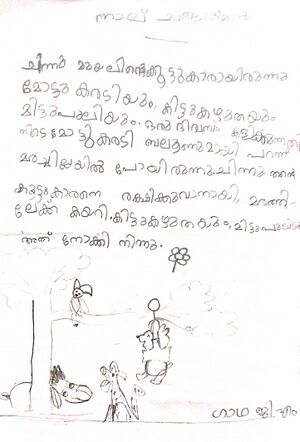 നാല് ചങ്ങാതിമാർ
ചിന്നു മുയലിന്റെ കൂട്ടുകാരായിരുന്നു
മോട്ടു കരടിയും, കിട്ടു കഴുതയും
മിട്ടു പുലിയും. ഒരു ദിവസം കളിക്കുന്നതി
നിടെ മോട്ടു കരടി ബലൂണുമായി പറന്ന്
മരച്ചില്ലയിൽ പോയിരുന്നു ചിന്നു തന്റെ
കൂട്ടുകാരനെ രക്ഷിക്കുവാനായി, മരത്തി-
ലേക്ക് കയറി. കിട്ടു കഴുതയും, മിട്ടു പുലിയും
അത് നോക്കി നിന്നു.
ഗാഥ ജി.എം